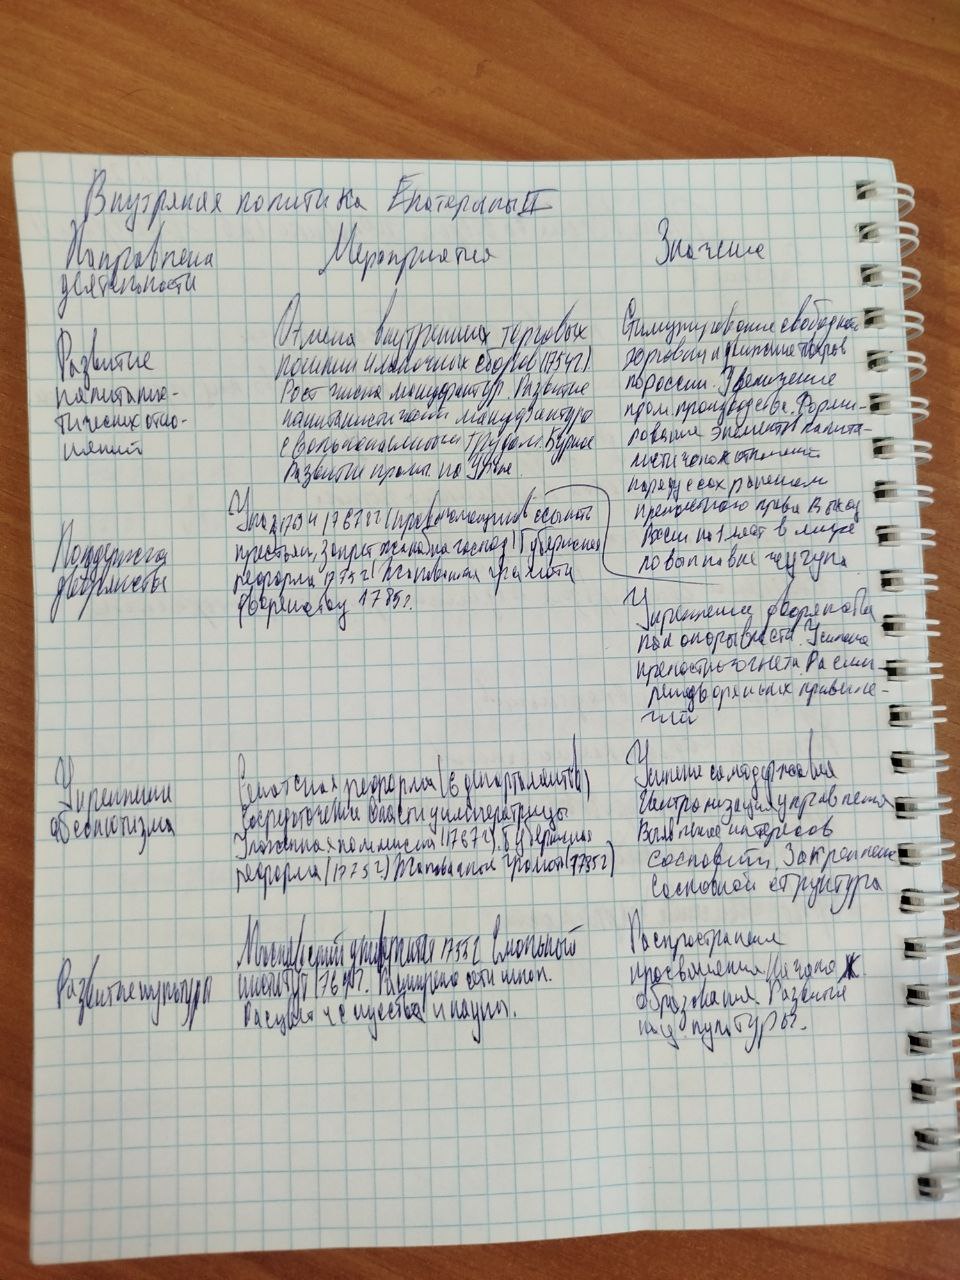 Внутряная политика Екатерины II
Направлена
деятельности
Мероприятия
Значение
Развитие
капитали-
тических отно-
шений
Отмена внутренних торговых
пошлин и сборов (1754г).
Рост числа мануфактур. Развитие
капиталистичест мануфактур
с вольнонаемным трудом. Бурное
Развитие пром. на Урале.
Стимулирование свободной
торговли и движение товаров
по россии. Увеличение
пром. производства. Форми-
рование элементов капита-
листических отношений
наряду с сохранением
крепостного права. Выход
на 1 мест в мире
по выплавке чугуна.
Поддержка
дворянства
Указ 1765 и 1767гг (право помещиков ссылать
крестьян, запрет жалоб на господ) Губернская
реформа 1775г. Жалованная грамота
дворянству 1785г.
Укрепление дворянства
как опоры власти. Усиление
крепостного гнета. Расши-
рение дворянских привиле-
гий
Укрепление
абсолютизма
Сенатская реформа (6 департаментов)
Сосредоточение власти у императрицы
Уложенная комиссия (1767г). Губернская
реформа (1775г.) Жалованная грамота (1785г)
Усиление самодержавия
Централизация управления
интересов
сословий. Закрепление
сословной структура
Развитие культуры
Московский университет 1755г. Смольный
институт 1764г. Расширено сети школ.
Расцвет искусства и науки.
Распространения
просвещения. Начало ж.
образования. Развитие
культуры.